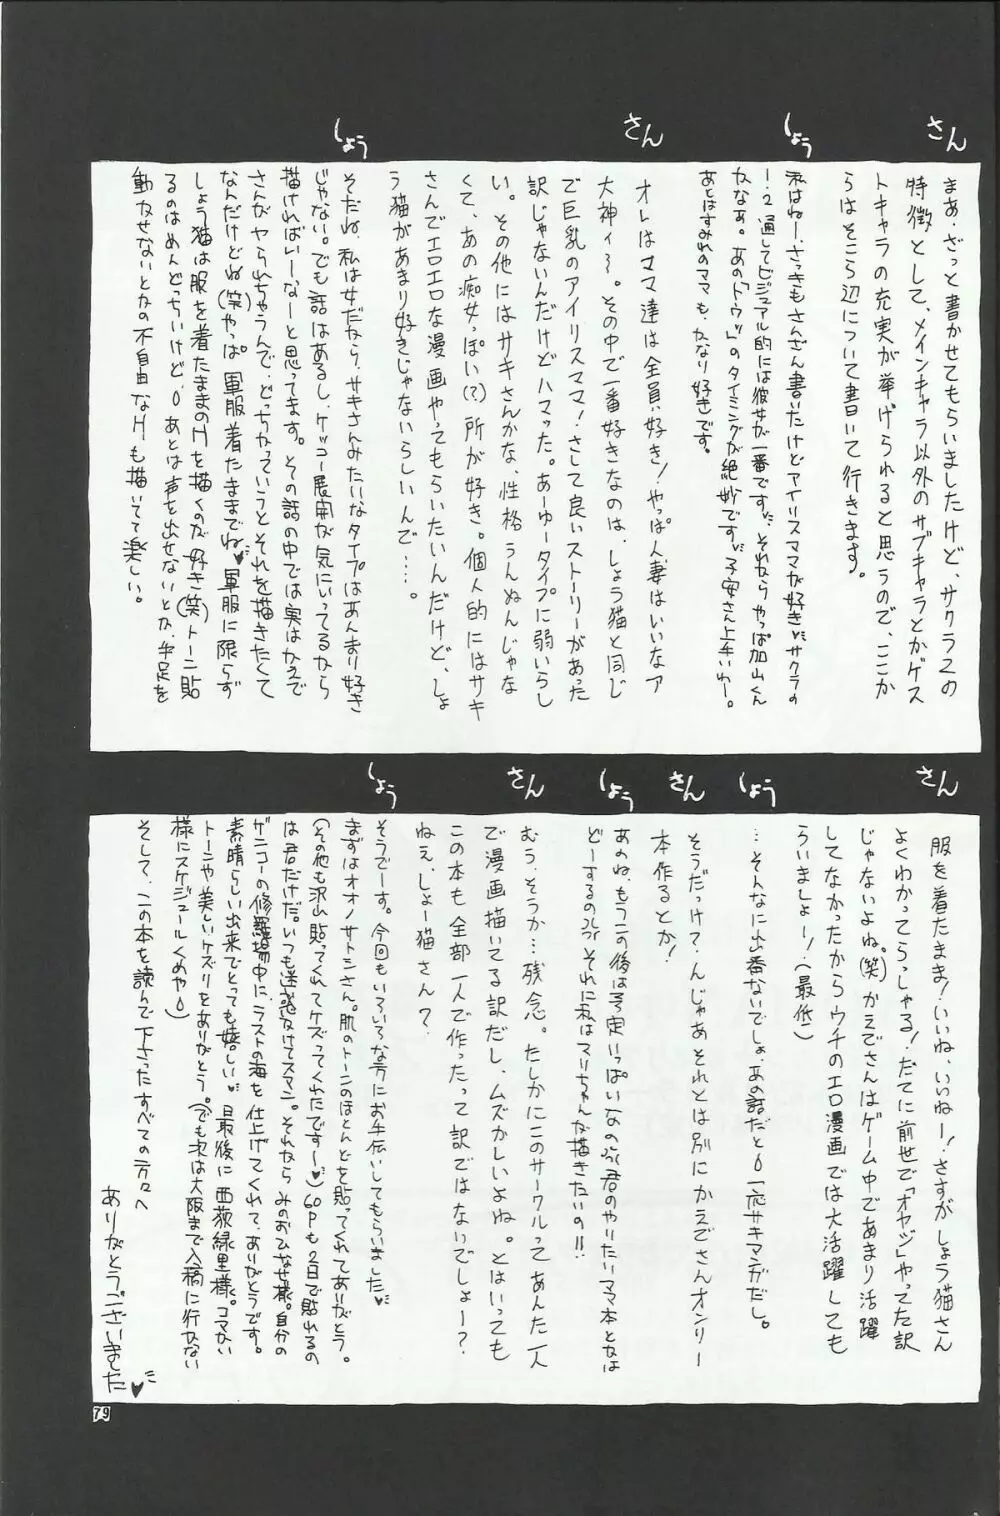 さん
まあ、ざっと書かせてもらいましたけど、サクラ2の
特徴として、メインキャラ以外のサブキャラとかゲス
トキャラの充実が挙げられると思うので、ここか
らはそこら辺について書いて行きます。
しょう
私はねー、さっきもさんざん書いたけどアイリスママが好き♥サクラの
1・2通してビジュアル的には彼女が一番です。それからやっぱ加山くん
かなぁ。あの「トウッ」のタイミングが絶妙です。子安さん上手いわー。
あとはすみれのママも、かなり好きです。
さん
オレはママ達は全員好き!やっぱ人妻はいいなァ
大神ィ〜。その中で一番好きなのは、しょう猫と同じ
で巨乳のアイリスママ!さして良いストーリーがあった
訳じゃないんだけどハマッた。あーゆータイプに弱いらし
い。その他にはサキさんかな、性格うんぬんじゃな
くて、あの痴女っぽい(?)所が好き。個人的にはサキ
さんでエロエロな漫画やってもらいたいんだけど、しょ
う猫があまり好きじゃないらしいんで……。
しょう
そだね、私は女だから、サキさんみたいなタイプはあんまり好き
じゃない。でも話はあるし、ケッコー展開が気にいってるなら
描ければいーなーと思ってます。その話の中では実はかえで
さんがヤられちゃうんで、どっちかっていうとそれを描きたくて
なんだけどね(笑)やっぱ軍服着たままでね♥軍服に限らず
しょう猫は服を着たままのHを描くのが好き(笑)トーン貼
るのはめんどっちいけど。あとは声を出せないとか、手足を
動かせないとかの不自由なHも描いてて楽しい。
さん
服を着たまま!いいね、いいねー!さすがしょう猫さん
よくわかってらっしゃる!だてに前世で「オヤジ」やってた訳
じゃないよね。(笑)かえでさんはゲーム中であまり活躍
してなかったからウチのエロ漫画では大活躍しても
らいましょー!(最低)
しょう
…そんなに出番ないでしょ、あの話だと。一応サキマンガだし。
さん
そうだっけ?んじゃあそれとは別にかえでさんオンリー
本作るとか!
しょう
あのね、もうこの後は予定いっぱいなの。君のやりたいママ本とかは
どーするの。それに私はマリちゃんが描きたいの!!
さん
むう、そうか…残念。たしかにこのサークルってあんた一人
で漫画描いてる訳だし、ムズかしいよね。とはいっても
この本も全部一人で作ったって訳ではないでしょー?
ねぇ、しょー猫さん?
しょう
そうでーす。今回もいろいろな方にお手伝いしてもらいました♥
まずはオオノサトシさん。肌のトーンのほとんどを貼ってくれてありがとう。
(その他も沢山貼ってくれてケズってくれたですー♥)60Pも2日で貼れるの
は君だけだ。いつも迷惑かけてスマン。それから みのおひなせ様。自分の
ゲンコーの修羅場中に、ラストの海を仕上げてくれて、ありがとうです。
素晴らしい出来でとっても嬉しい♥最後に西荻緑里様。コマかい
トーンや美しいケズリをありがとう。(でも次は大阪まで入稿に行かない
様にスケジュールくめや)
そして、この本を読んで下さったすべての方々へ
ありがとうございました♥
79